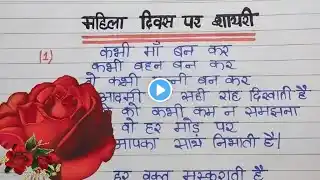 महिला दिवस पर शायरी
(1)
कभी माँ बन कर
कभी बहन बन कर
कभी बन कर
सही राह दिखाती है
को कभी कम न समझना
वो हर मोड़ पर
आपका साथ निभाती है।
हर वक्त मुस्कराती है